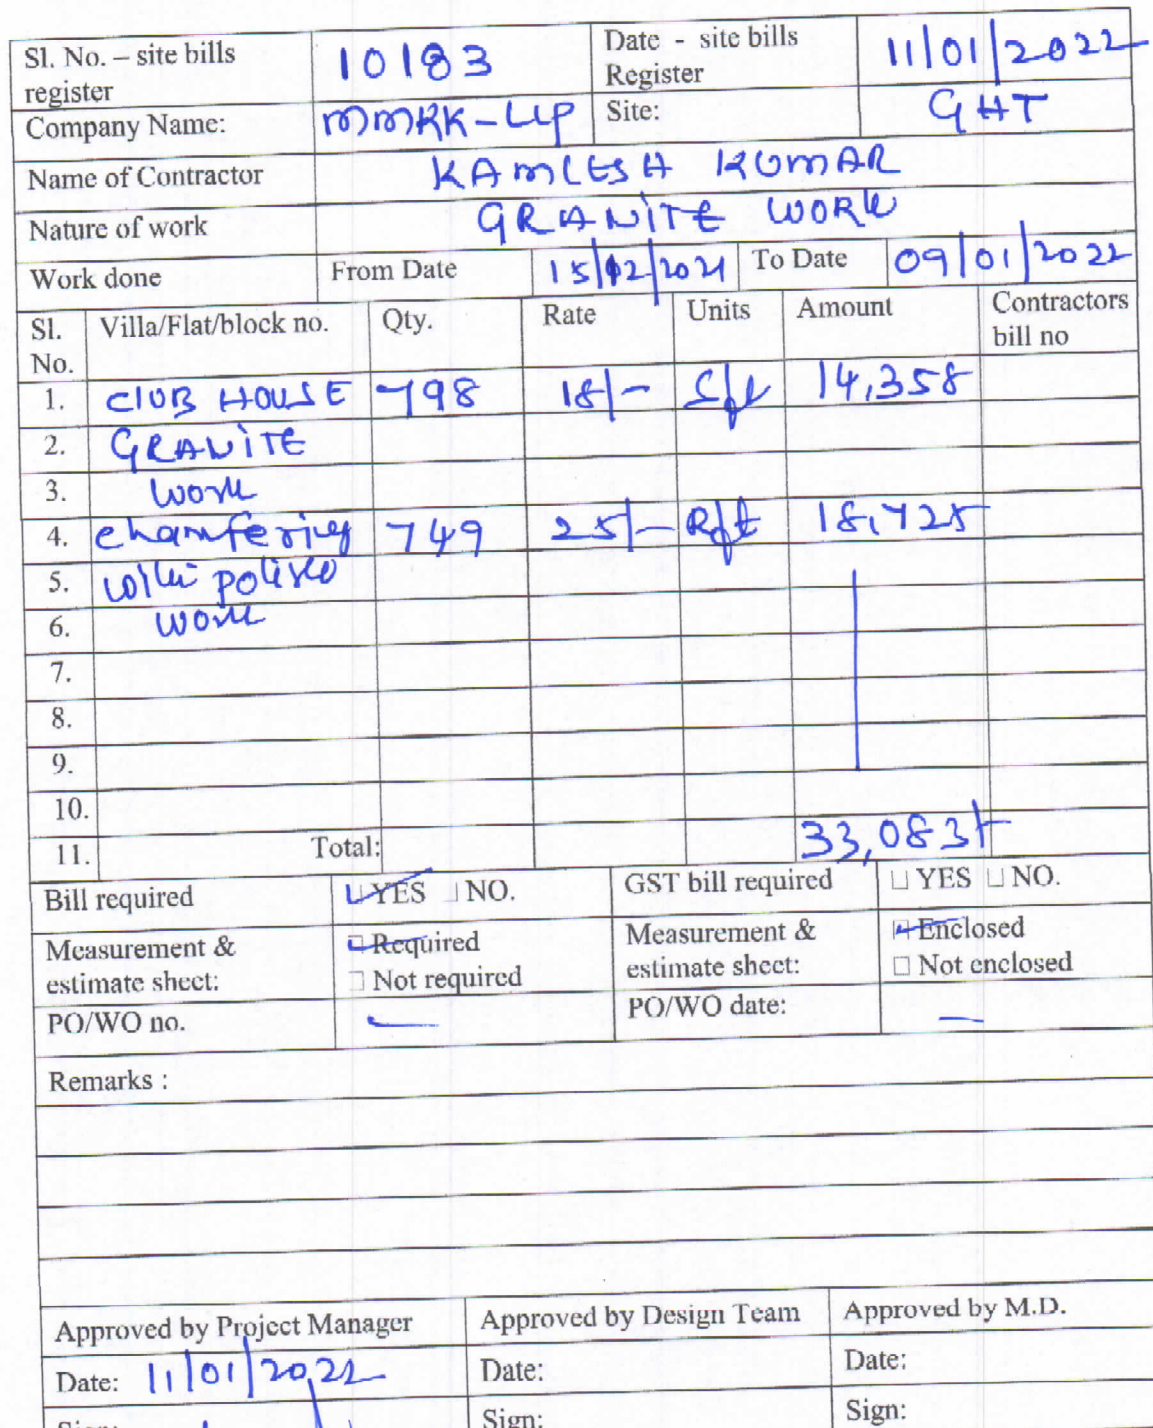 Sl. No. – site bills register 10183 Date - site bills Register 11/01/2022
Company Name: MMRK-LLP Site: GHT
Name of Contractor KAMLESH KUMAR
Nature of work GRANITE WORK
Work done From Date 15/12/2021 To Date 09/01/2022
Sl. No. Villa/Flat/block no. Qty. Rate Units Amount Contractors bill no
1. CLUB HOUSE 798 18/- Sft 14,358
2. GRANITE
3. Work
4. chamfering 749 25/- Rft 18,725
5. with polish
6. Work
7.
8.
9.
10.
11. Total: 33,083/-
Bill required YES NO. GST bill required YES NO.
Measurement & estimate sheet: Required Not required Measurement & estimate sheet: Enclosed Not enclosed
PO/WO no. — PO/WO date: —
Remarks :
Approved by Project Manager Approved by Design Team Approved by M.D.
Date: 11/01/2022 Date: Date:
Sign: Sign: Sign: